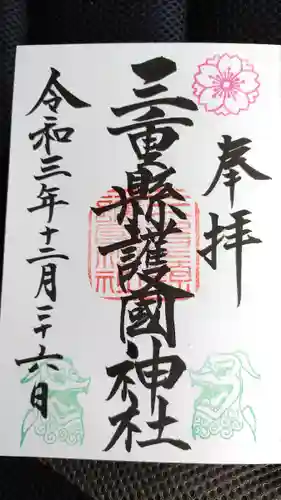 奉拝
三重縣護國神社
令和三年十二月二十六日